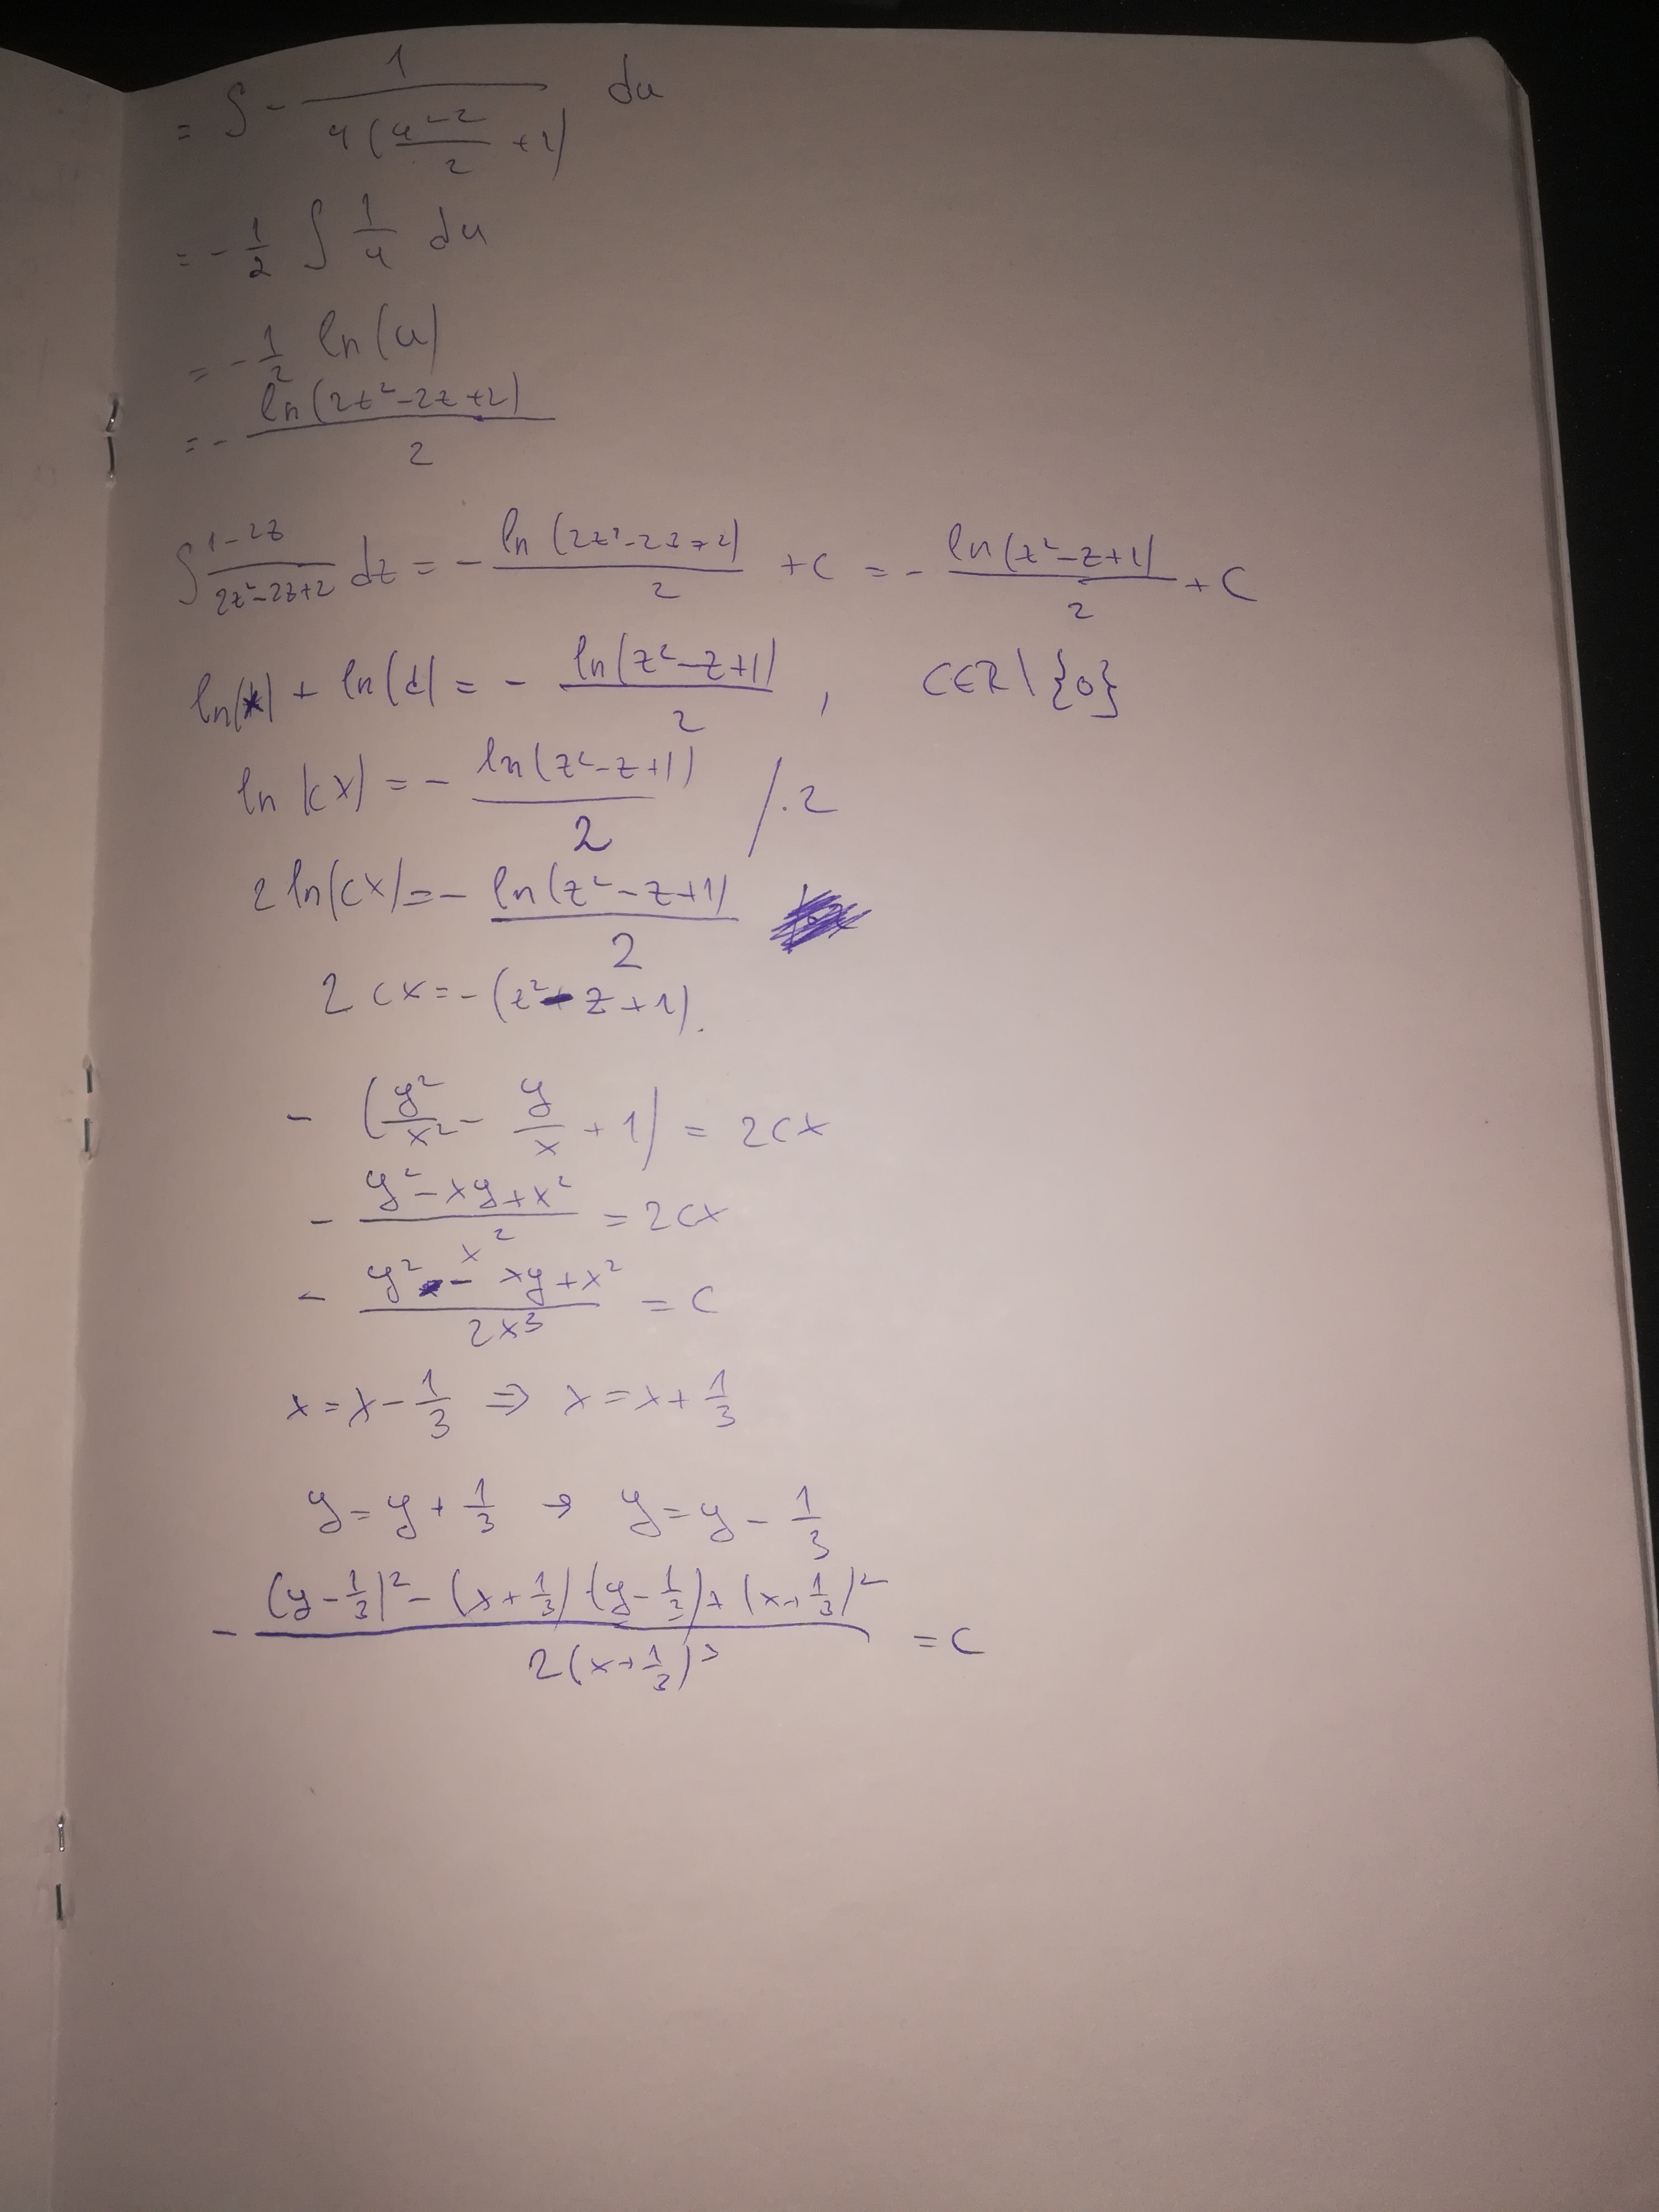 = ∫ - 1/(4((u-2)/2 + 2)) du
= - 1/2 ∫ 1/u du
= - 1/2 ln(u)
= - ln(2z²-2z+2)/2
∫ (1-2z)/(2z²-2z+2) dz = - ln(2z²-2z+2)/2 + C = - ln(z²-z+1)/2 + C
ln(x) + ln(c) = - ln(z²-z+1)/2 , C∈R\{0}
ln(cx) = - ln(z²-z+1)/2 /·2
2 ln(cx) = - ln(z²-z+1)/2
2cx = -(z²-z+1).
- (y²/x² - y/x + 1) = 2cx
- (y²-xy+x²)/x² = 2cx
- (y²-xy+x²)/(2x³) = c
x = x - 1/3 ⇒ x = x + 1/3
y = y + 1/3 → y = y - 1/3
- ((y-1/3)² - (x+1/3)(y-1/3) + (x+1/3)²)/(2(x+1/3)³) = c